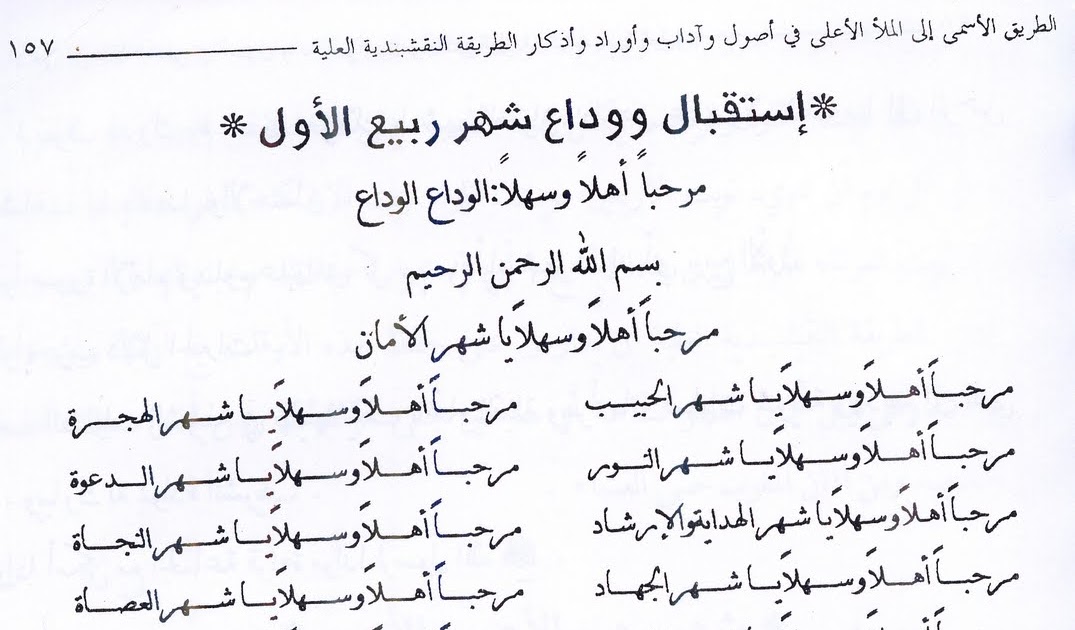 الطريق الأسمى إلى الملأ الأعلى في أصول وآداب وأوراد وأذكار الطريقة النقشبندية العلية ١٥٧
*إستقبال ووداع شهر ربيع الأول*
مرحباً أهلاً وسهلاً:الوداع الوداع
بسم الله الرحمن الرحيم
مرحباً أهلاً وسهلاً يا شهر الأمان
مرحباً أهلاً وسهلاً يا شهر الحبيب مرحباً أهلاً وسهلاً يا شهر الهجرة
مرحباً أهلاً وسهلاً يا شهر النور مرحباً أهلاً وسهلاً يا شهر الدعوة
مرحباً أهلاً وسهلاً يا شهر الهداية والإرشاد مرحباً أهلاً وسهلاً يا شهر النجاة
مرحباً أهلاً وسهلاً يا شهر الجهاد مرحباً أهلاً وسهلاً يا شهر العصاة